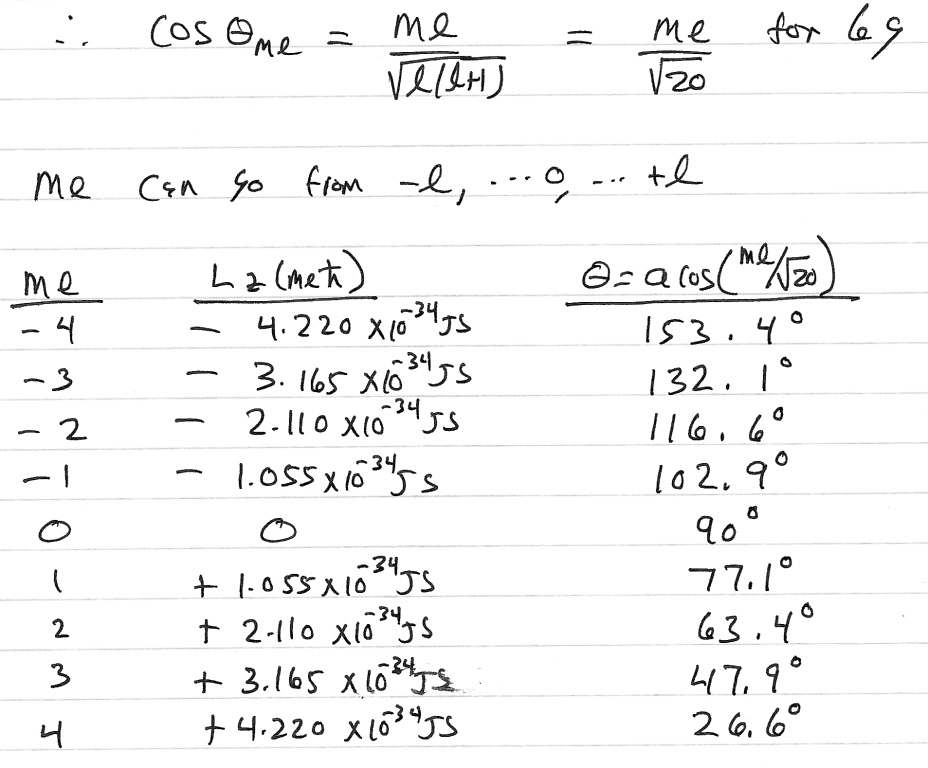 ∴ cos θme = me/√l(l+1) = me/√20 for 6g
me can go from -l, ... 0, ... +l
me Lz (meħ) θ = acos(me/√20)
-4 - 4.220 x10^-34 JS 153.4°
-3 - 3.165 x10^-34 JS 132.1°
-2 - 2.110 x10^-34 JS 116.6°
-1 - 1.055 x10^-34 JS 102.9°
0 0 90°
1 + 1.055 x10^-34 JS 77.1°
2 + 2.110 x10^-34 JS 63.4°
3 + 3.165 x10^-34 JS 47.9°
4 + 4.220 x10^-34 JS 26.6°